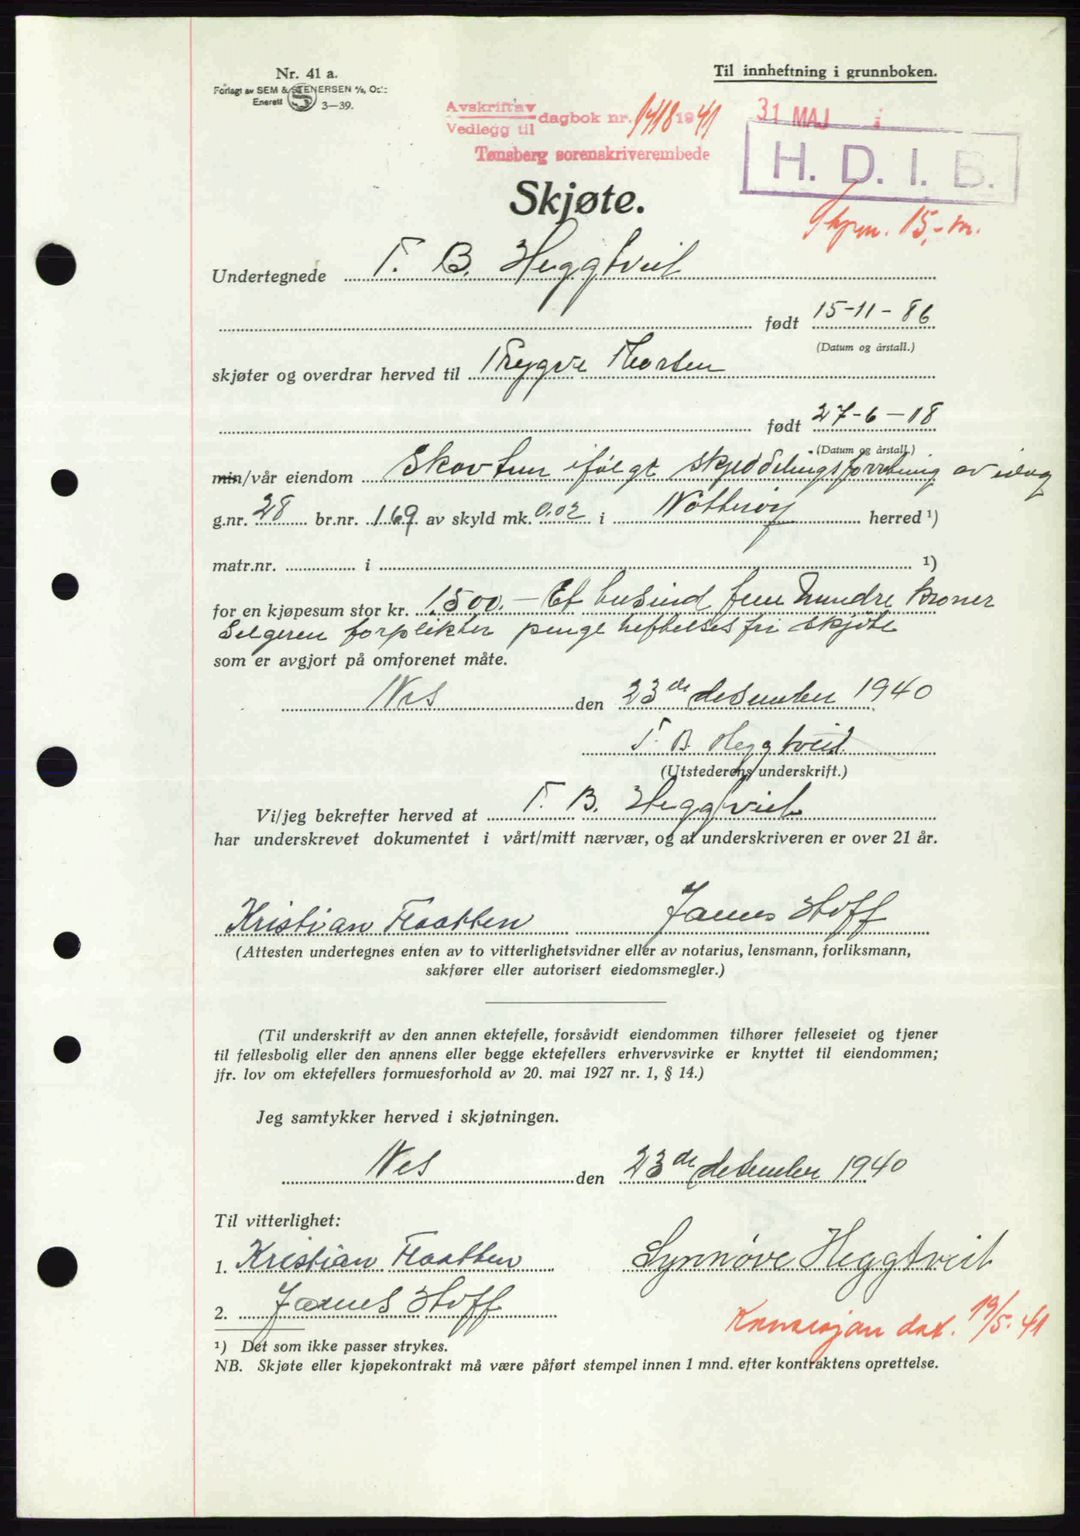 Nr. 41 a.
Forlagt av SEM & STENERSEN A/S, Oslo
Enerett 3—39.
Til innheftning i grunnboken.
Avskrift av
Vedlegg til dagbok nr. 1418 1941
Tønsberg sorenskriverembede
31 MAJ
H. D. I. B.
15,- m.
Skjøte.
Undertegnede T. B. Heggtveit
født 15-11-86
(Datum og årstall.)
skjøter og overdrar herved til Trygve Thorsen
født 27-6-18
(Datum og årstall.)
min/vår eiendom Skovtun ifølgt skyddelingsforretning av idag
g.nr. 28 br.nr. 169 av skyld mk. 0.02 i Nøtterøy herred ¹)
matr.nr. i ¹)
for en kjøpesum stor kr. 1500.- Et tusind fem hundre kroner
Selgeren forplikter penge heftelsesfri skjøte
som er avgjort på omforenet måte.
Nes den 23de desember 1940
T. B. Heggtveit
(Utstederens underskrift.)
Vi/jeg bekrefter herved at T. B. Heggtveit
har underskrevet dokumentet i vårt/mitt nærvær, og at underskriveren er over 21 år.
Kristian Flaatten James Hoff
(Attesten undertegnes enten av to vitterlighetsvidner eller av notarius, lensmann, forliksmann,
sakfører eller autorisert eiedomsmegler.)
(Til underskrift av den annen ektefelle, forsåvidt eiendommen tilhører felleseiet og tjener
til fellesbolig eller den annens eller begge ektefellers erhvervsvirke er knyttet til eiendommen;
jfr. lov om ektefellers formuesforhold av 20. mai 1927 nr. 1, § 14.)
Jeg samtykker herved i skjøtningen.
Nes den 23de desember 1940
Til vitterlighet:
1. Kristian Flaatten Synnøve Heggtveit
2. James Hoff
Konsesjon dat. 19/5. 41
¹) Det som ikke passer strykes.
NB. Skjøte eller kjøpekontrakt må være påført stempel innen 1 mnd. efter kontraktens oprettelse.